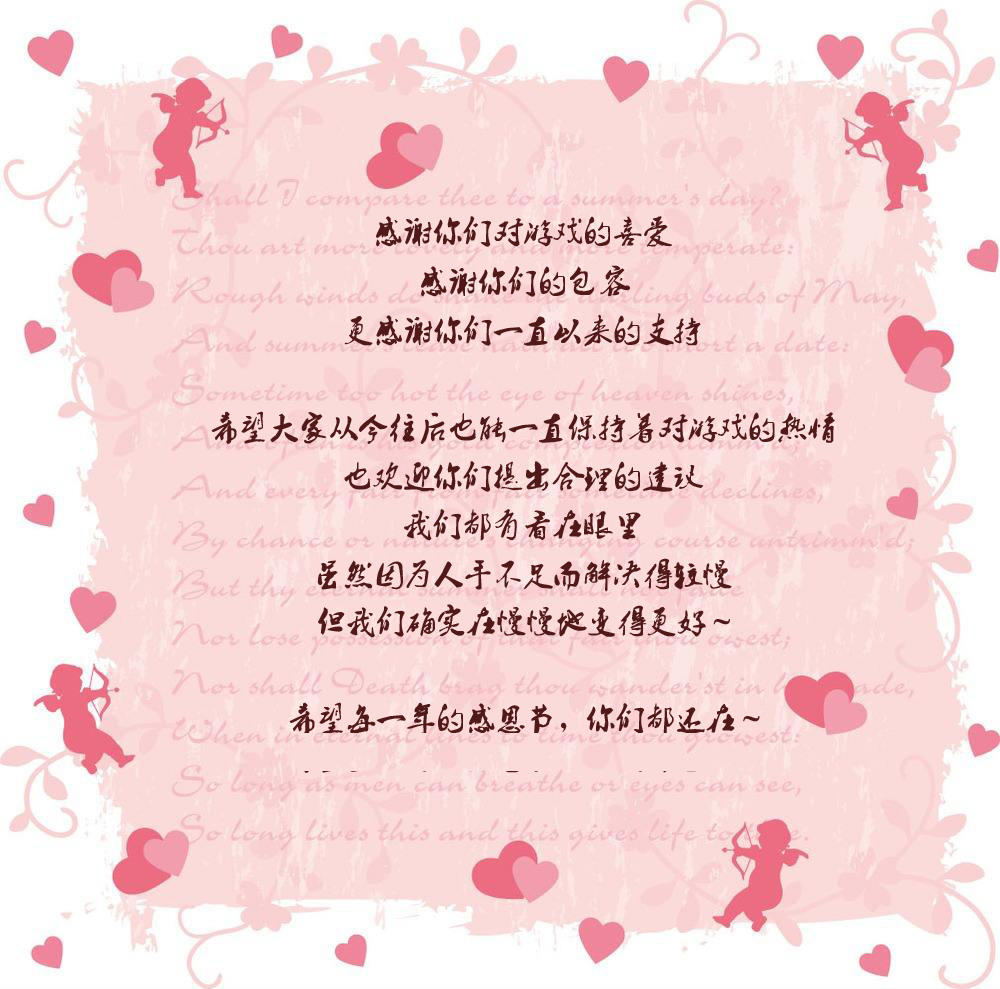 感谢你们对游戏的喜爱
感谢你们的包容
更感谢你们一直以来的支持
希望大家从今往后也能一直保持着对游戏的热情
也欢迎你们提出合理的建议
我们都有看在眼里
虽然因为人手不足而解决得较慢
但我们确实在慢慢地变得更好~
希望每一年的感恩节，你们都还在~
Shall I compare thee to a summer's day?
Thou art more lovely and more temperate:
Rough winds do buds of May,
And summer's lease hath all too short a date:
Sometime too hot the eye of heaven shines,
And every fair from fair declines,
By chance or nature's changing course untrimm'd;
But thy eternal summer shall
Nor lose possession of that fair thou owest;
Nor shall Death brag thou wander'st in
When in eternal lines to time thou growest:
So long as men can breathe or eyes can see,
So long lives this and this gives life to